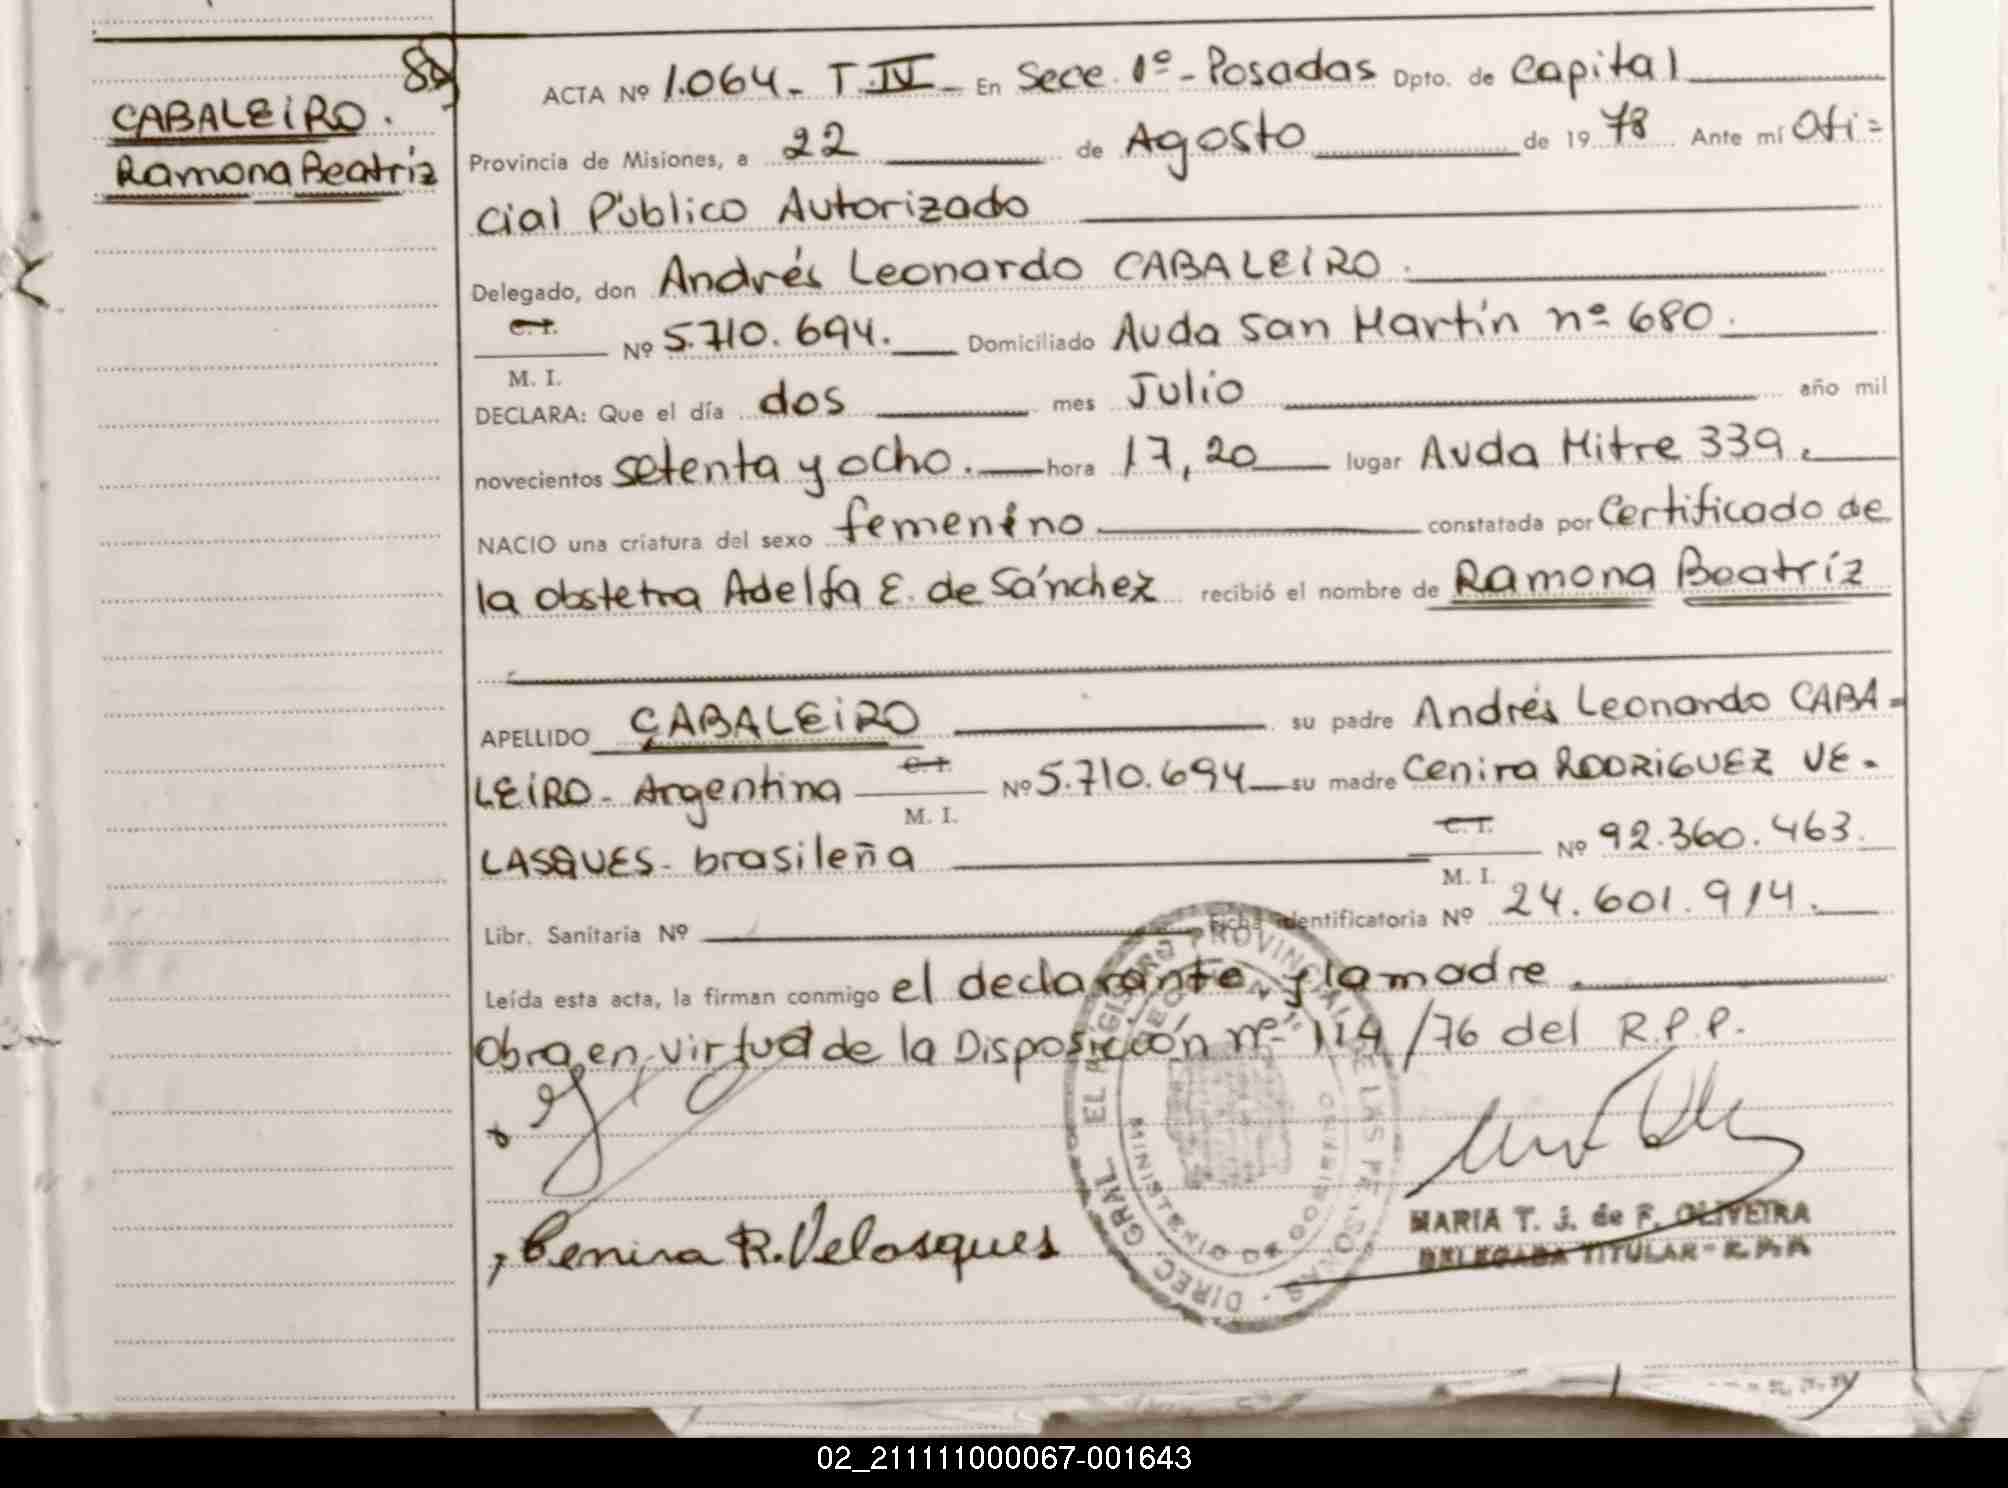 80
CABALEIRO.
Ramona Beatríz
ACTA Nº 1.064 - T. IV - En Secc. 1º - Posadas Dpto. de Capital
Provincia de Misiones, a 22 de Agosto de 1978 Ante mí Ofi=
cial Público Autorizado
Delegado, don Andrés Leonardo CABALEIRO.
C. I.
Nº 5.710.694. Domiciliado Avda San Martín nº 680.
M. I.
DECLARA: Que el día dos mes Julio año mil
novecientos setenta y ocho. hora 17,20 lugar Avda Mitre 339.
NACIO una criatura del sexo femenino constatada por Certificado de
la obstetra Adelfa E. de Sánchez recibió el nombre de Ramona Beatríz
APELLIDO CABALEIRO su padre Andrés Leonardo CABA=
LEIRO - Argentina C. I. Nº 5.710.694 su madre Cenira RODRIGUEZ VE-
M. I.
LASQUES - brasileña C. I. Nº 92.360.463.
M. I.
Libr. Sanitaria Nº Ficha identificatoria Nº 24.601.914.
Leída esta acta, la firman conmigo el declarante y la madre
Obra en virtud de la Disposición nº 114/76 del R.P.P.
Cenira R. Velasques
MARIA T. J. de F. OLIVEIRA
DELEGADA TITULAR - R.P.P.
DIREC. GRAL. EL REGISTRO PROVINCIAL DE LAS PERSONAS
MINISTERIO DE GOBIERNO
02_211111000067-001643